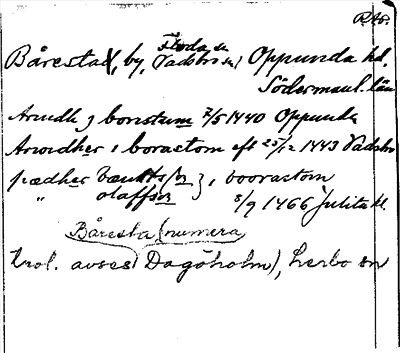 RAp.
Bårestad, by, Floda sn
Vadsbro sn, Oppunda hd.
Södermanl. län
Arndh j borustum 7/5 1440 Oppunda
Arwidher i borastom eft 25/12 1443 Vadsbro
pædher bænkts(son
" olaffson }, i boorastom
8/9 1466 Julita kl.
Båresta (numera
trol. avses Dagöholm), herbo sn